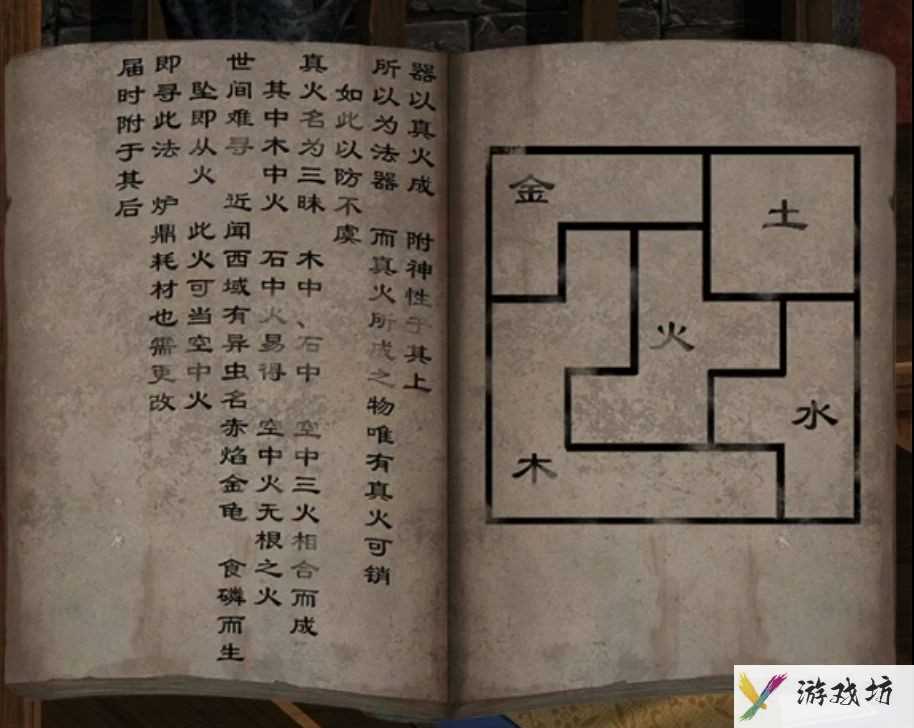 器以真火成 附神性于其上
所以为法器 而真火所成之物唯有真火可销
如此以防不虞
真火名为三昧 木中、石中 空中三火相合而成
其中木中火 石中火易得 空中火无根之火
世间难寻 近闻西域有异虫名赤焰金龟 食磷而生
坠即从火 此火可当空中火
即寻此法 炉鼎耗材也需更改
届时附于其后
金
土
火
水
木
游戏坊